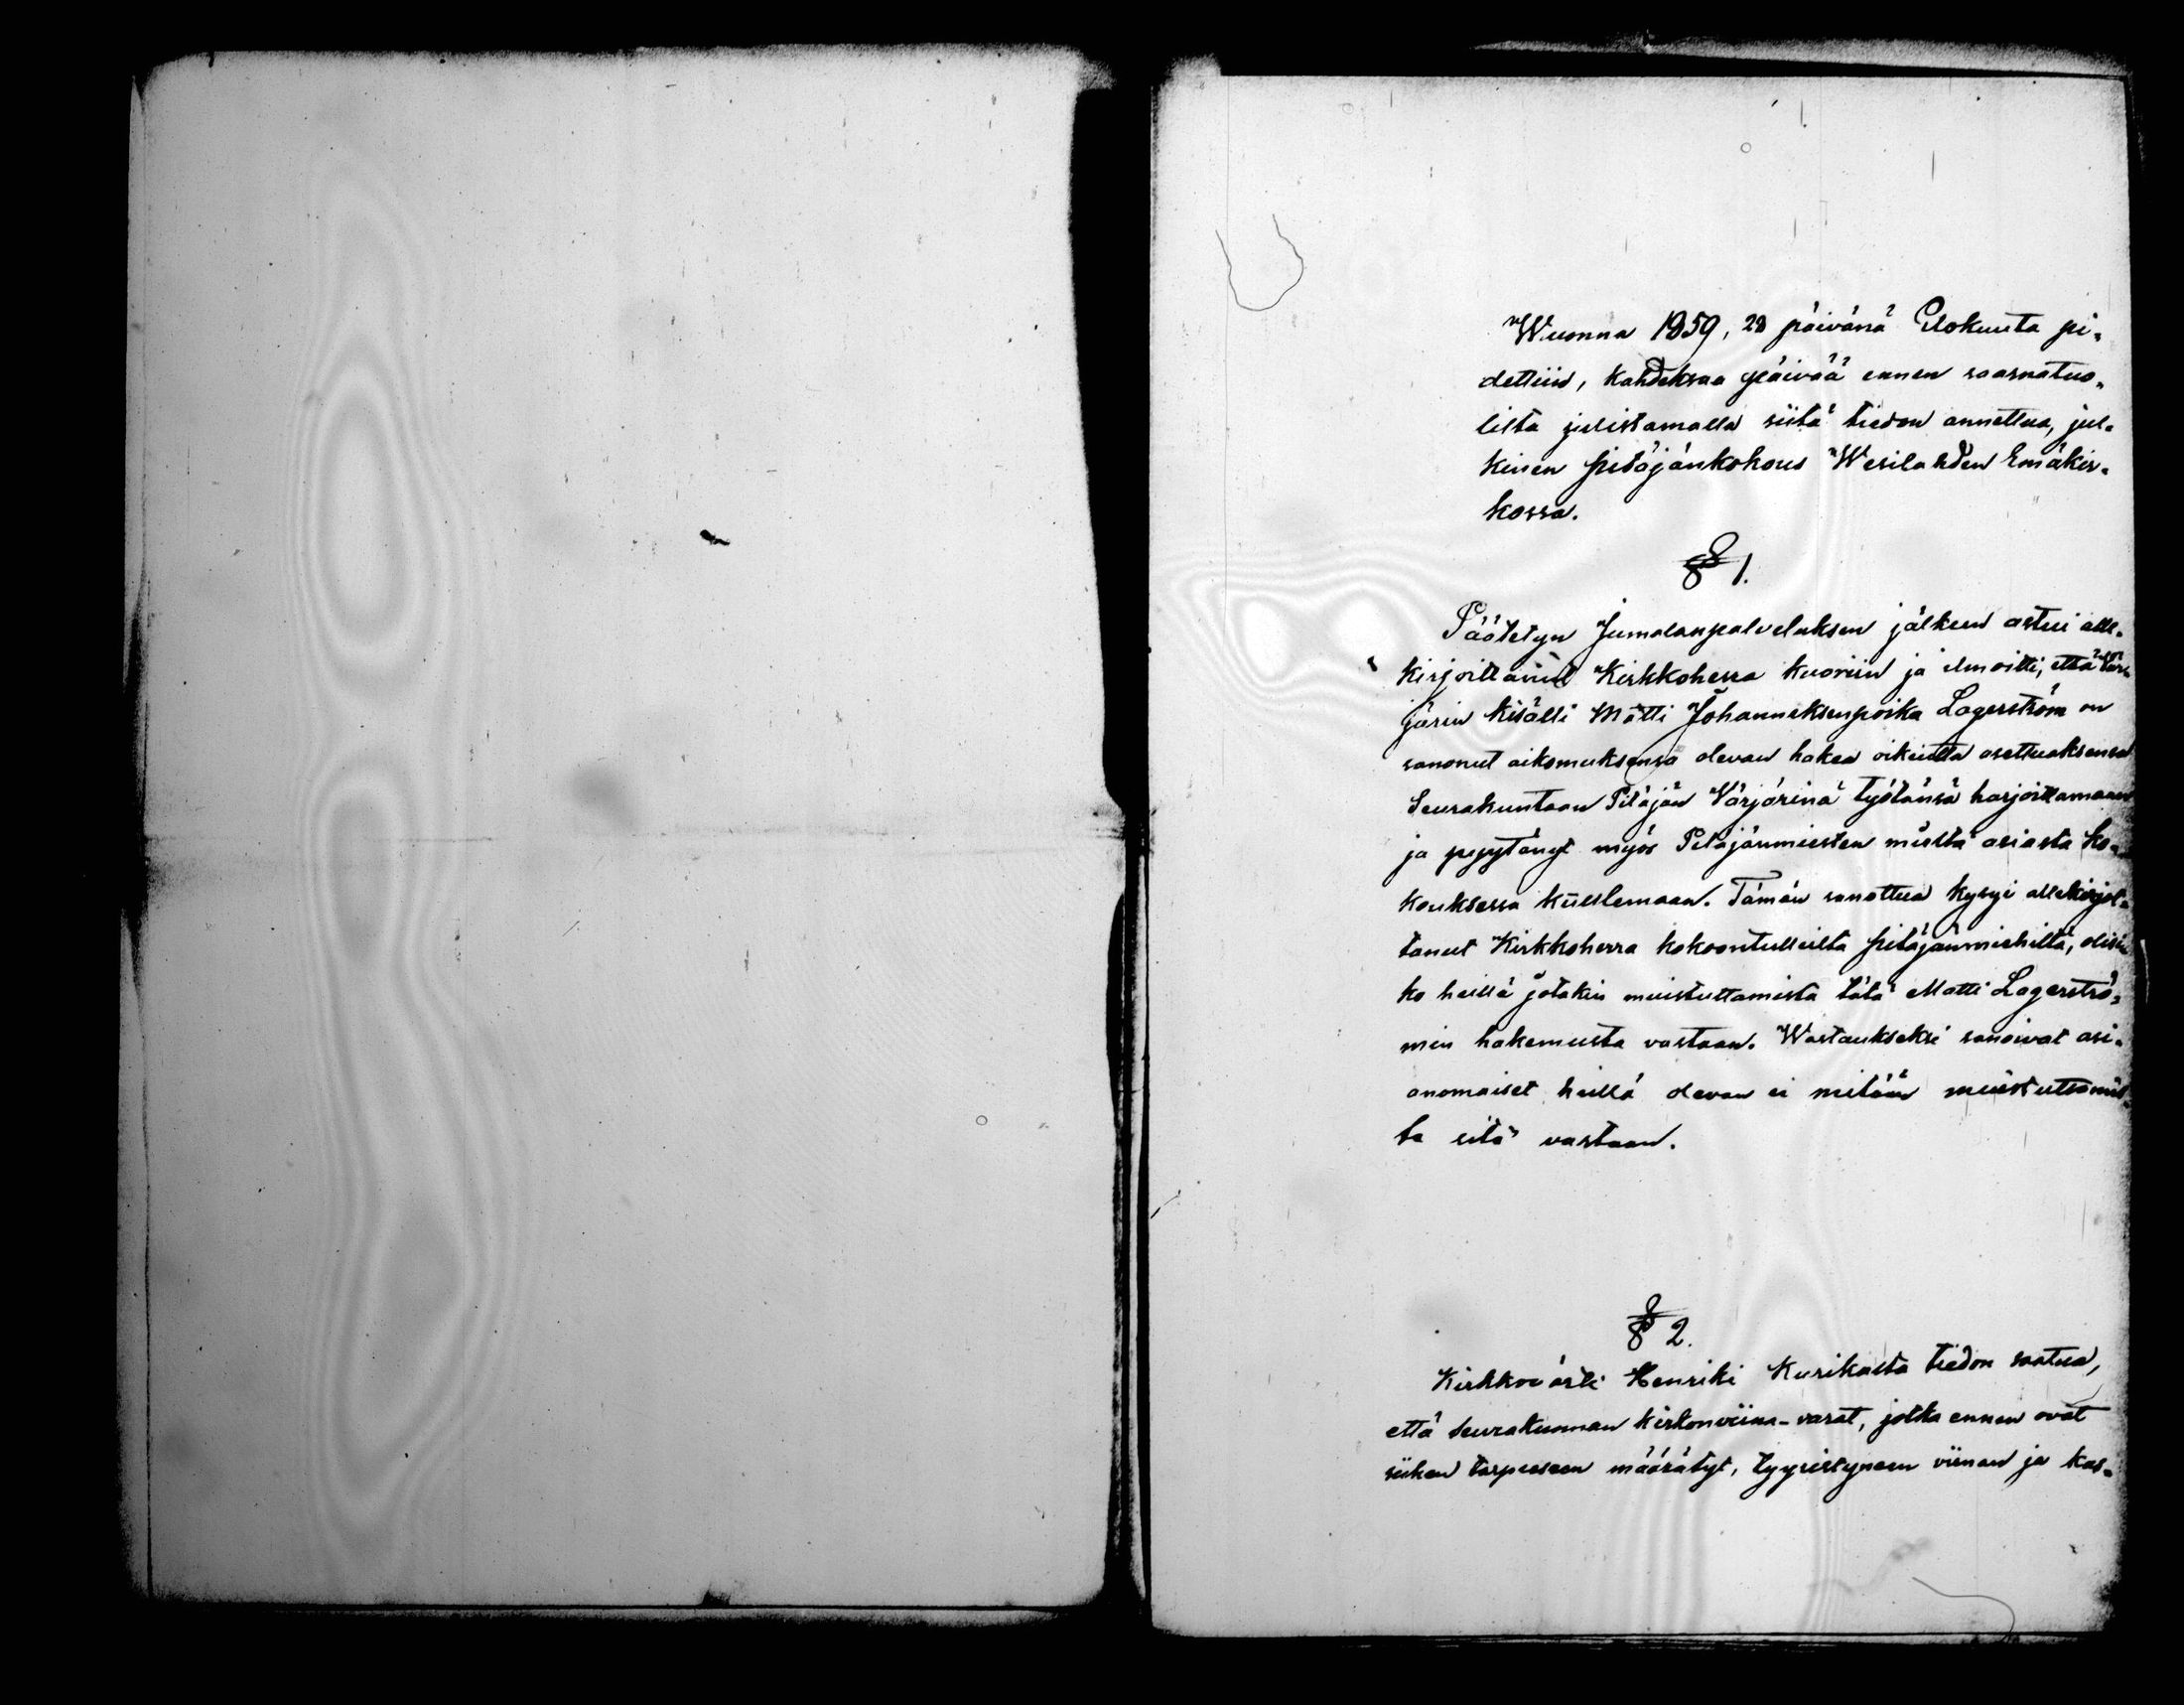 Wuonna 1859, 28 päivänä Elokuuta pi-
dettiin, kahdeksaa päivää ennen saarnatuo-
lilta julistamalla siitä tiedon annettua, jul-
kinen pitäjänkokous Wesilahden Emäkir-
kossa.
§ 1.
Päätetyn Jumalanpalveluksen jälkeen astui alle-
kirjoittanut Kirkkoherra kuoriin ja ilmoitti, että Vär-
järin kisälli Matti Johanneksenpoika Lagerström on
sanonut aikomuksensa olevan hakea oikeutta asettuaksensa
Seurakuntaan Pitäjän Värjärinä työtänsä harjoittamaan
ja pyytänyt myös Pitäjänmiesten mieltä asiasta ko-
kouksessa kuulemaan. Tämän sanottua kysyi allekirjot-
tanut Kirkkoherra kokoontulleilta pitäjänmiehiltä, olisi-
ko heillä jotakin muistuttamista tätä Matti Lagerströ-
min hakemusta vastaan. Wastaukseksi sanoivat asi-
anomaiset heillä olevan ei mitään muistuttamis-
ta sitä vastaan.
§ 2.
Kirkkovärti Henriki Kurikalta tiedon saatua,
että seurakunnan kirkonviina-varat, jotka ennen ovat
siihen tarpeeseen määrätyt, tyyristyneen viinan ja kas-